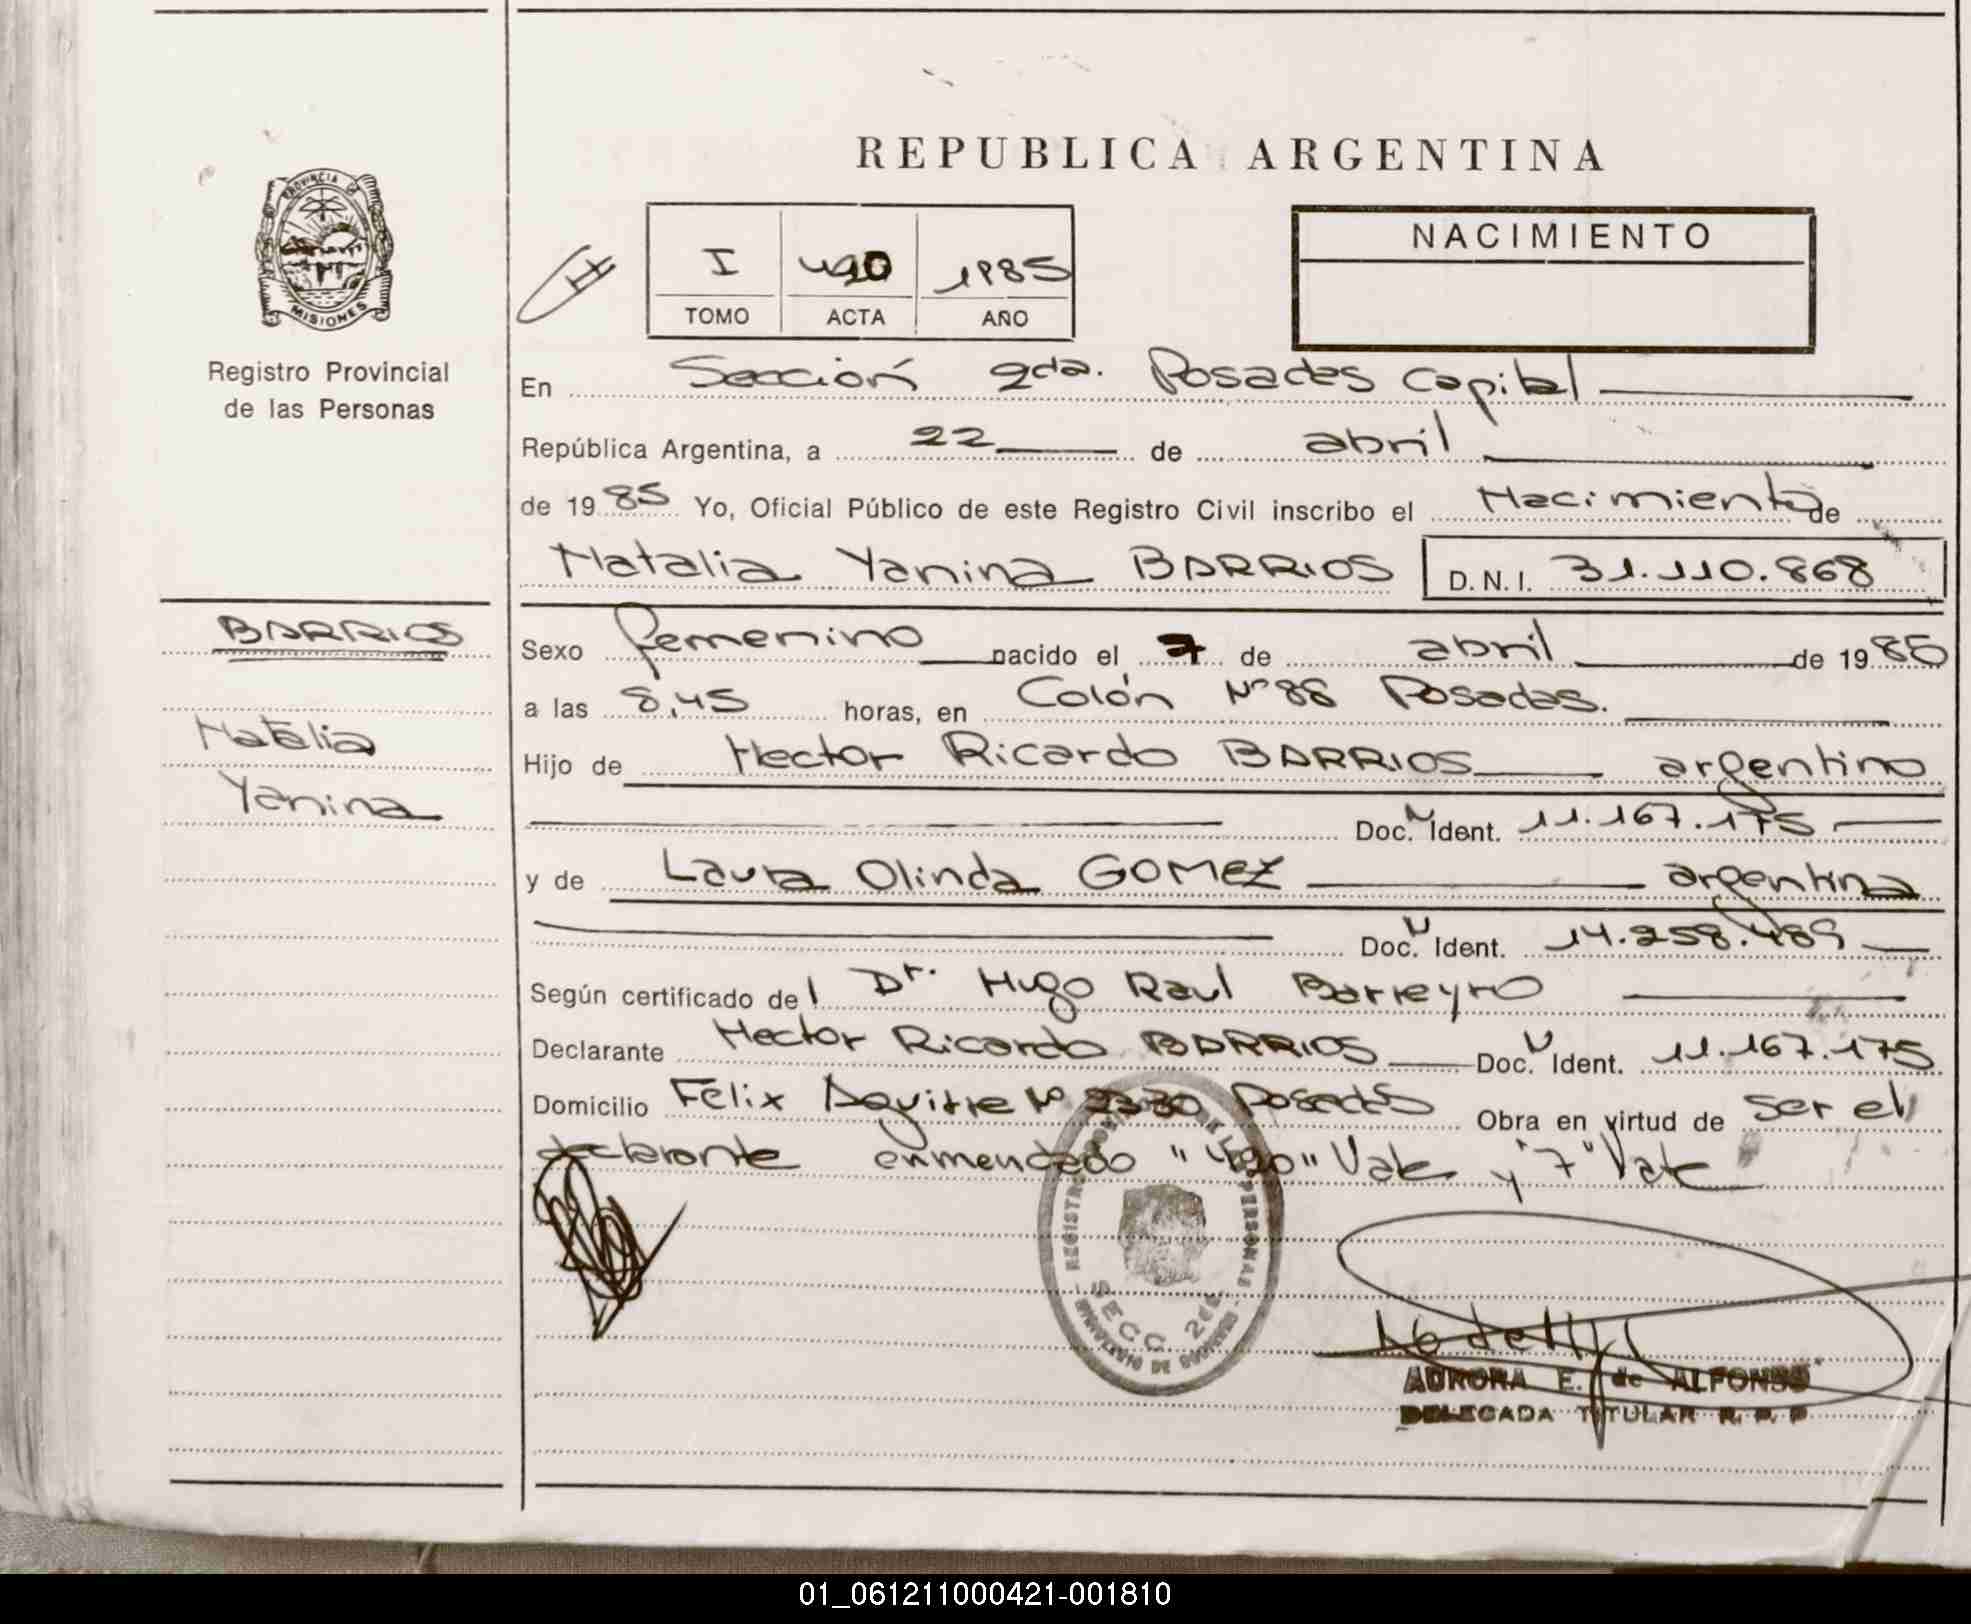 REPUBLICA ARGENTINA
PROVINCIA DE
MISIONES
Registro Provincial
de las Personas
I 420 1985
TOMO ACTA AÑO
NACIMIENTO
En Sección 2da. Posadas Capital
República Argentina, a 22 de abril
de 1985 Yo, Oficial Público de este Registro Civil inscribo el Nacimiento de
Natalia Yanina BARRIOS D.N.I. 31.110.868
BARRIOS
Natalia
Yanina
Sexo femenino nacido el 7 de abril de 1985
a las 8,45 horas, en Colón Nº 88 Posadas.
Hijo de Hector Ricardo BARRIOS argentino
Doc. N Ident. 11.167.175
y de Laura Olinda GOMEZ argentina
Doc. N Ident. 14.258.489
Según certificado del Dr. Hugo Raul Barreyro
Declarante Hector Ricardo BARRIOS Doc. N Ident. 11.167.175
Domicilio Felix Aguirre Nº 2330 Posadas Obra en virtud de ser el
declarante enmendado "420" Vale y "7" Vale
SECC 2da
AURORA E. de ALFONSO
DELEGADA TITULAR R. P. P
01_061211000421-001810